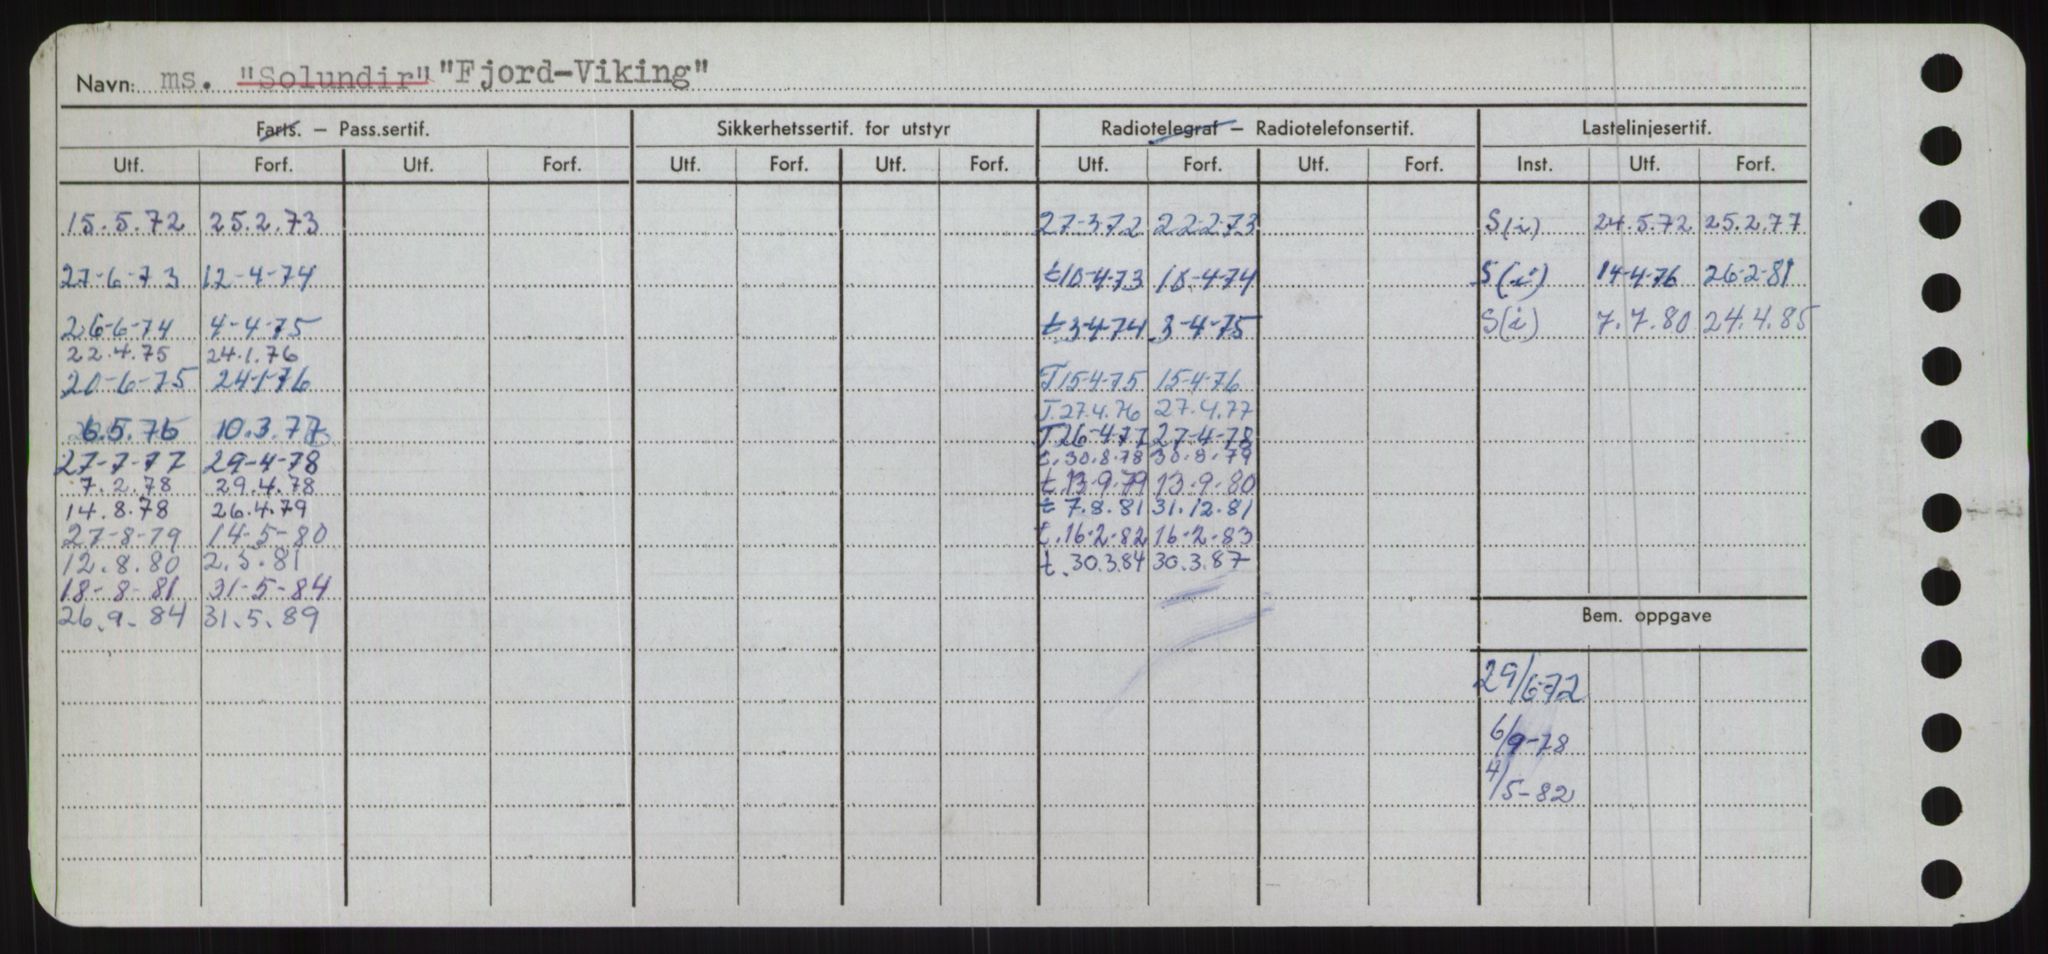 Navn: ms. "Solundir" "Fjord-Viking"
Farts. – Pass.sertif. Sikkerhetssertif. for utstyr Radiotelegraf – Radiotelefonsertif. Lastelinjesertif.
Utf. Forf. Utf. Forf. Utf. Forf. Utf. Forf. Utf. Forf. Utf. Forf. Inst. Utf. Forf.
15.5.72 25.2.73 27-3-72 22-2-73 S(i) 24.5.72 25.2.77
27-6-73 12-4-74 t 10-4-73 10-4-74 S(i) 14-4-76 26-2-81
26-6-74 4-4-75 t 3-4-74 3-4-75 S(i) 7.7.80 24.4.85
22.4.75 24.1.76
20-6-75 24-1-76 T 15-4-75 15-4-76
T. 27.4.76 27.4.77
6.5.76 10.3.77 T. 26-4-77 27-4-78
27-7-77 29-4-78 t. 30.8.78 30.8.79
7.2.78 29.4.78 t. 13-9-79 13.9.80
14.8.78 26.4.79 t 7.8.81 31.12.81
27-8-79 14-5-80 t. 16-2-82 16-2-83
12.8.80 2.5.81 t. 30.3.84 30.3.87
18-8-81 31-5-84
26.9.84 31.5.89 Bem. oppgave
29/6-72
6/9-78
4/5-82